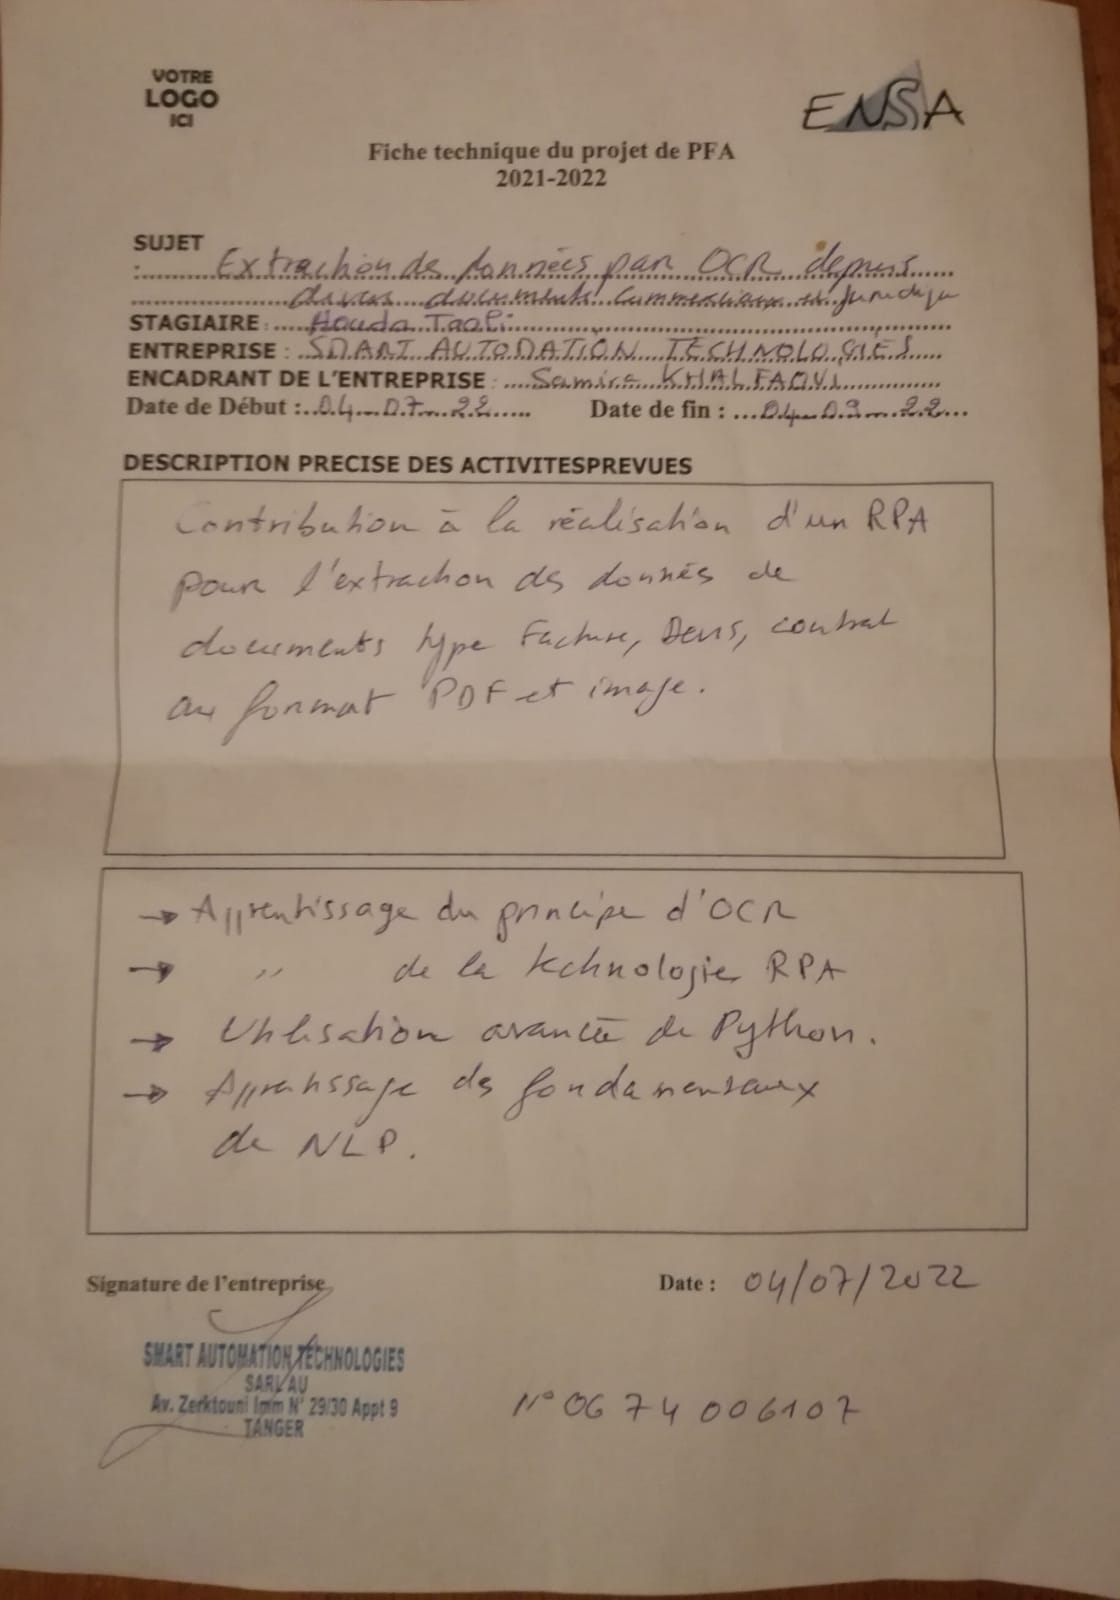 VOTRE
LOGO
ICI
ENSA
Fiche technique du projet de PFA
2021-2022
SUJET
: Extraction de données par OCR depuis
divers documents commerciaux et juridique
STAGIAIRE : Houda
ENTREPRISE : SMART AUTOMATION TECHNOLOGIES
ENCADRANT DE L'ENTREPRISE : Samira KHALFAOUI
Date de Début : 04 07 22 Date de fin : 04 09 22
DESCRIPTION PRECISE DES ACTIVITESPREVUES
Contribution à la réalisation d'un RPA
pour l'extraction des données de
documents type Facture, Devis, contrat
au format PDF et image.
→ Apprentissage du principe d'OCR
→ '' de la technologie RPA
→ Utilisation avancée de Python.
→ Apprentissage des fondamentaux
de NLP.
Signature de l'entreprise
Date : 04/07/2022
SMART AUTOMATION TECHNOLOGIES
SARL AU
Av. Zerktouni Imm N° 29/30 Appt 9
TANGER
N° 06 74 006107